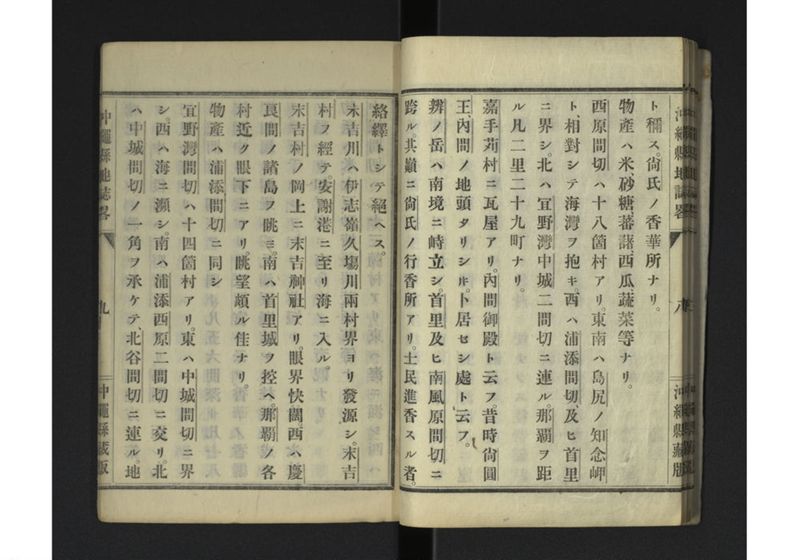 ト稱ス尙氏ノ香華所ナリ。
物產ハ米、砂糖、蕃藷、西瓜、蔬菜等ナリ。
西原間切ハ十八箇村アリ。東南ハ島尻ノ知念岬
ト、相對シテ海灣ヲ抱キ。西ハ浦添間切、及ヒ首里
ニ界シ。北ハ宜野灣中城二間切ニ連ル。那覇ヲ距
ル凡二里二十九町ナリ。
嘉手苅村ニ瓦屋アリ。內間御殿ト云フ昔時尙圓
王、內間ノ地頭タリシ㆐。卜居セシ處ト云フ。
辨ノ岳ハ南境ニ峙立シ。首里及ヒ南風原間切ニ
跨ル。其巓ニ尙氏ノ行香所アリ。士民進香スル者。
沖繩縣地誌略
八
沖繩縣藏版
絡繹トシテ絕ヘス。
末吉川ハ伊志嶺久場川兩村界ヨリ發源シ。末吉
村ヲ經テ安謝港ニ至リ海ニ入ル。
末吉村ノ岡上ニ末吉神社アリ。眼界快闊、西ハ慶
良間ノ諸島ヲ眺ミ。南ハ首里城ヲ控ヘ。那覇ノ各
村近ク眼下ニアリ。眺望頗ル佳ナリ。
物產ハ浦添間切ニ同シ
宜野灣間切ハ十四箇村アリ。東ハ中城間切ニ界
シ。西ハ海ニ瀕シ。南ハ浦添西原二間切ニ交リ。北
ハ中城間切ノ一角ヲ承ケテ、北谷間切ニ連ル、地
沖繩縣地誌略
九
沖繩縣藏版